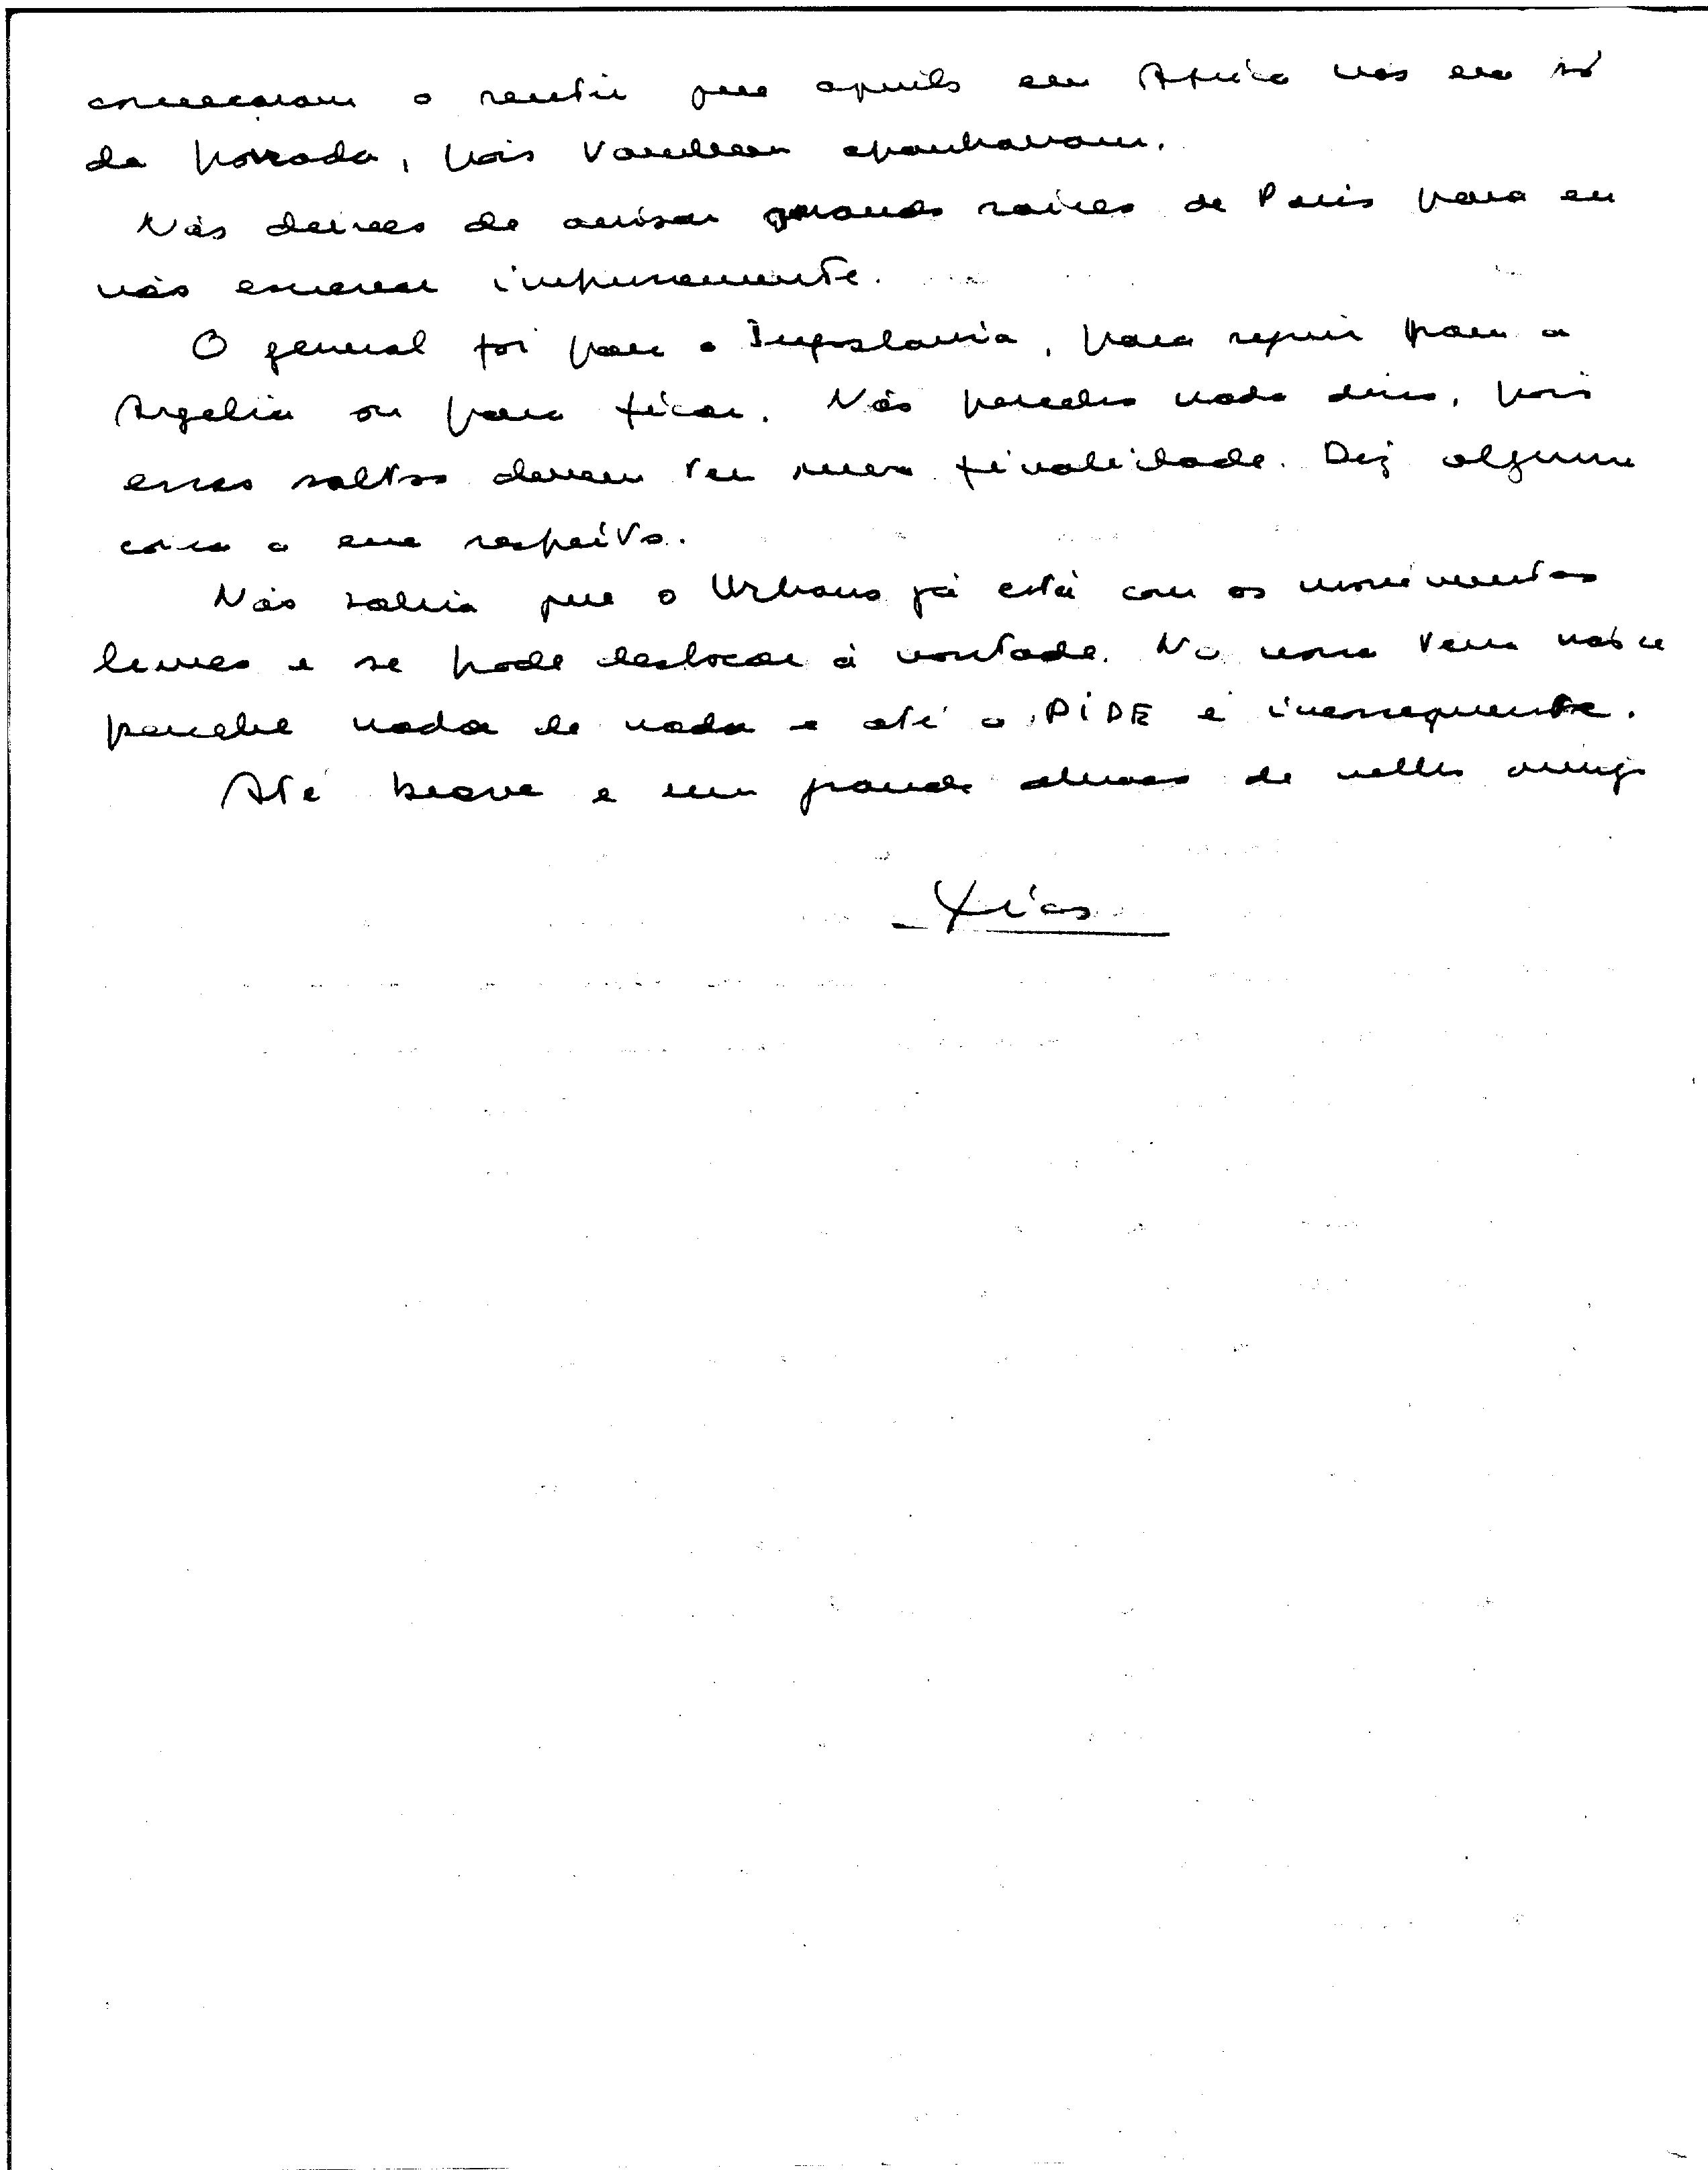 começaram a sentir que aquilo em Africa não era só
da porrada, pois também apanhavam.
Não deixes de avisar quando saires de Paris para eu
não escrever
O general foi para a Iugoslavia, para seguir para a
Argelia ou para ficar. Não percebo nada disso, pois
esses saltos devem ter uma finalidade. Diz alguma
coisa a esse respeito.
Não sabia que o Urbano já está com os movimentos
livres e se pode deslocar à vontade. Na nossa terra não se
percebe nada de nada e até a PIDE é inconsequente.
Até breve e um grande abraço do velho amigo